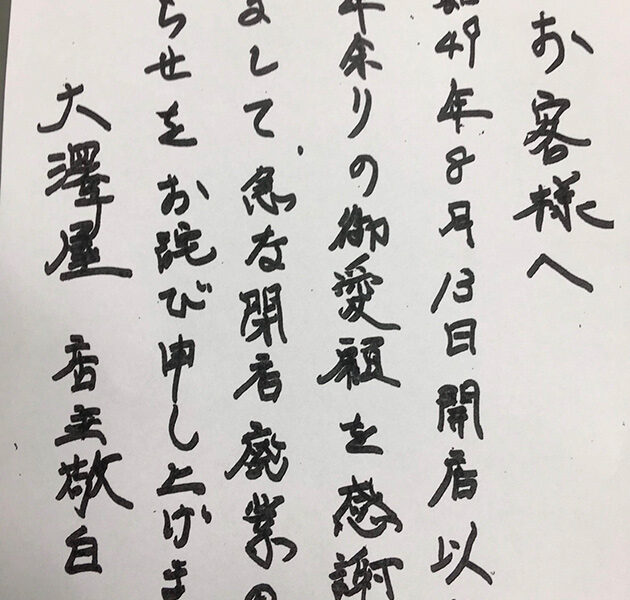 お客様へ
49年8月13日開店以
年余りの御愛顧を感謝
まして、急な閉店廃業の
らせをお詫び申し上げま
大澤屋 店主敬白